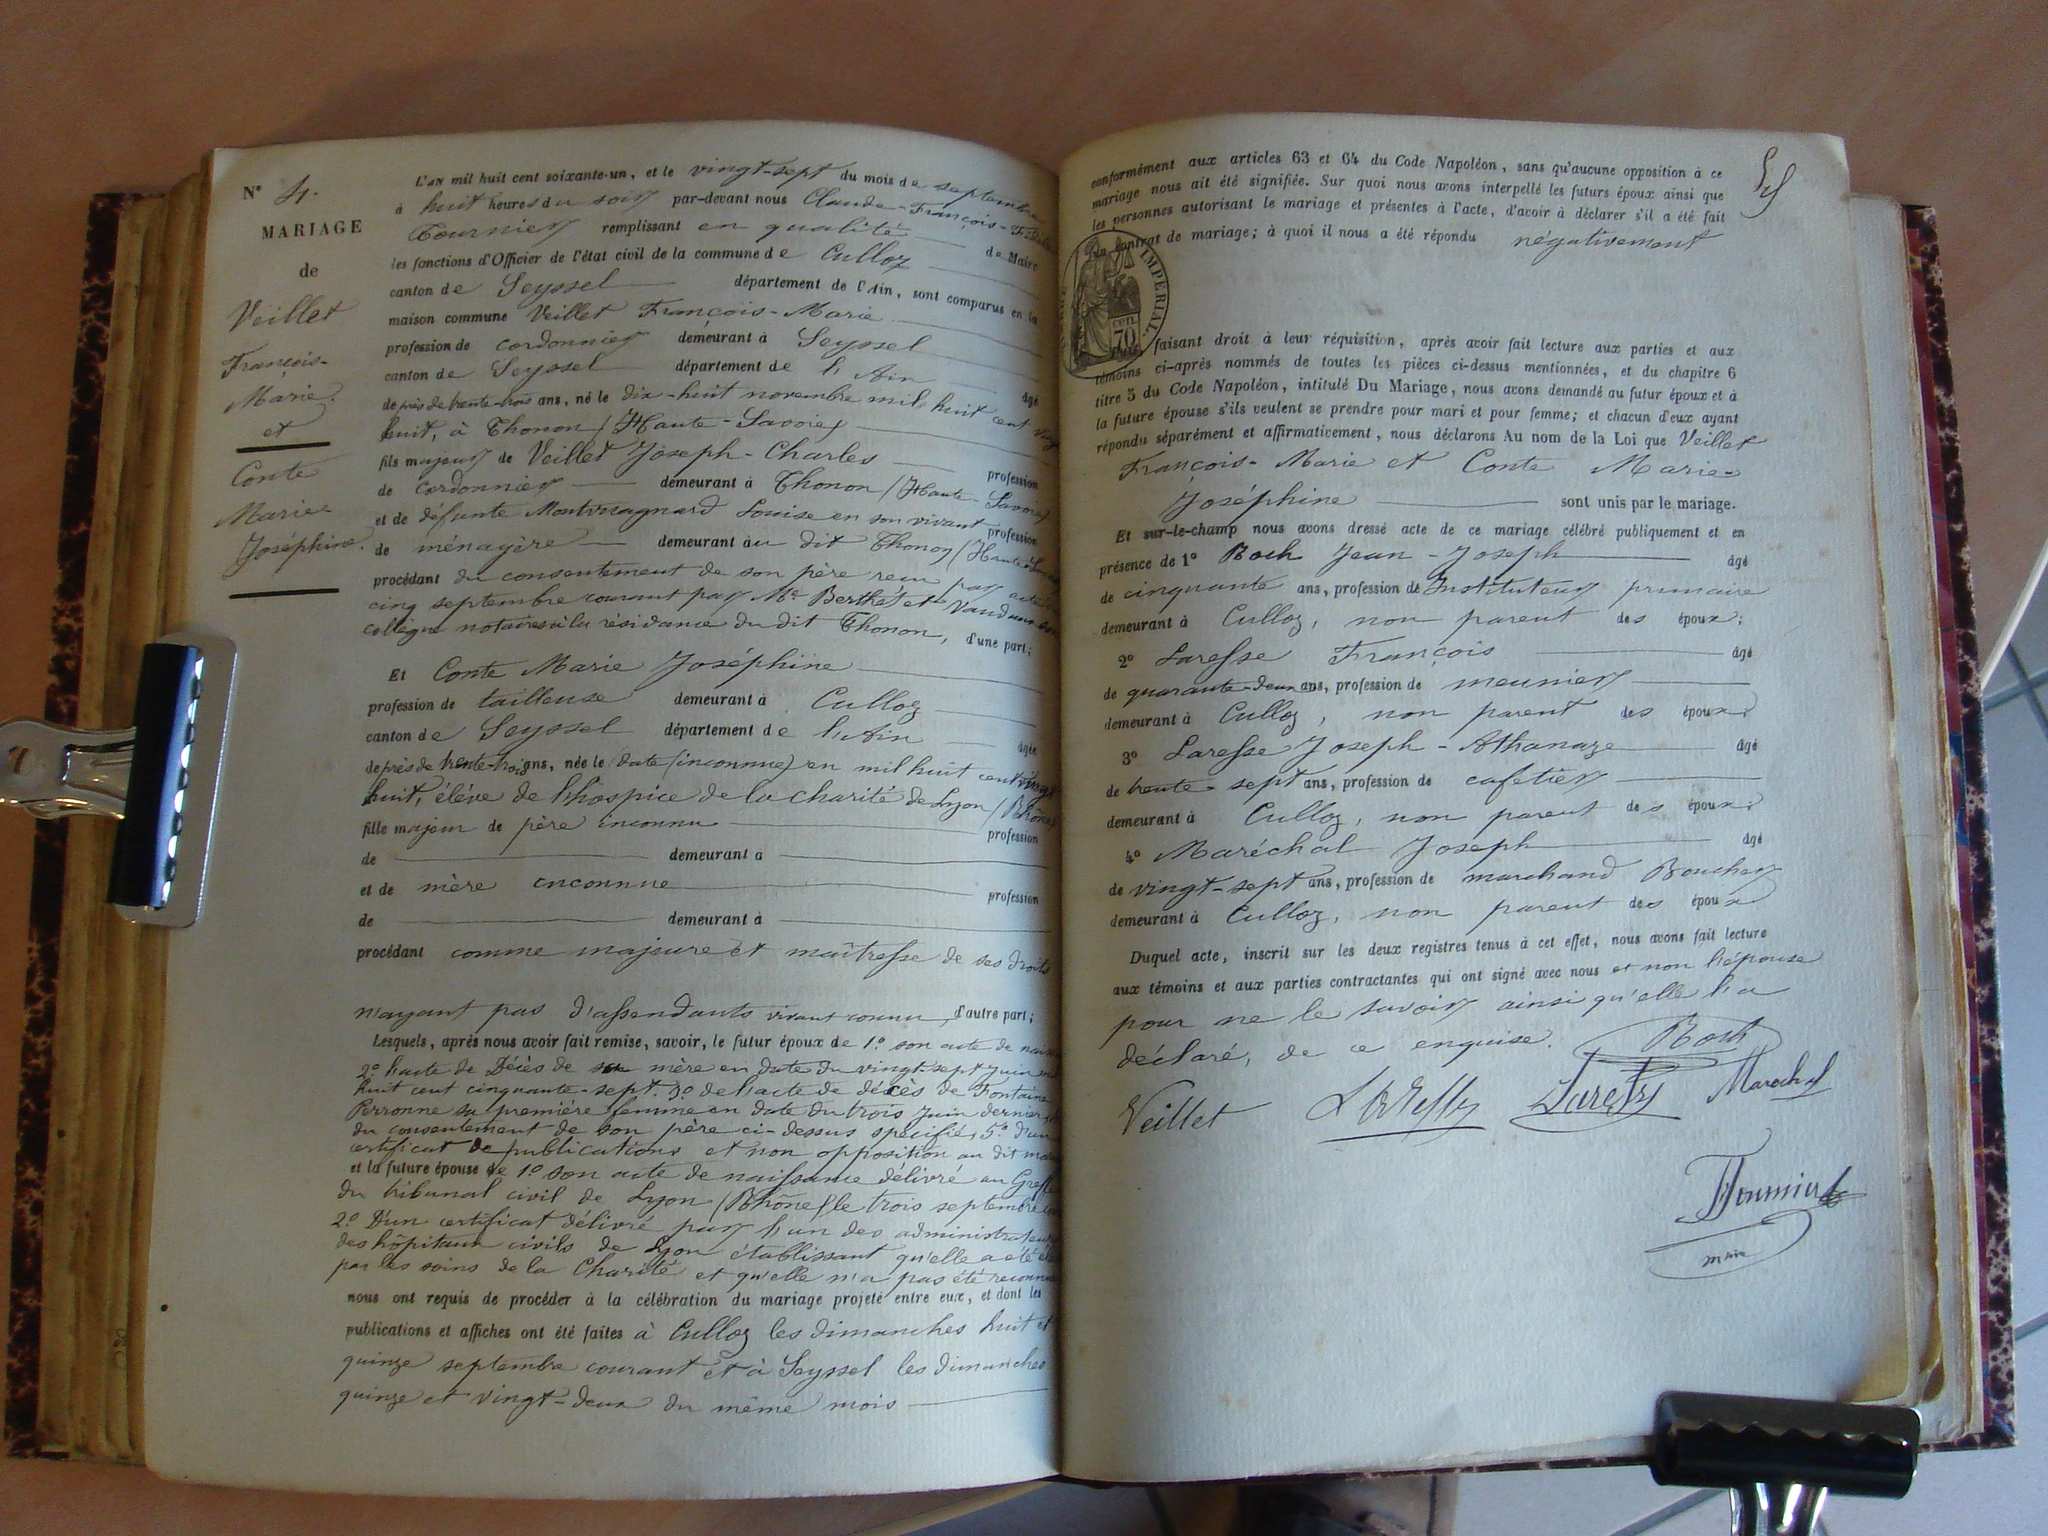 N° 4.
MARIAGE
de
Veillet
François-
Marie.
et
Conte
Marie
Joséphine.
L'an mil huit cent soixante-un, et le vingt-sept du mois de septembre
à huit heures du soir par-devant nous Claude-François-
Fournier remplissant en qualité de Maire
les fonctions d'Officier de l'état civil de la commune de Culloz
canton de Seyssel département de l'Ain, sont comparus en la
maison commune Veillet François-Marie
profession de cordonnier demeurant à Seyssel
canton de Seyssel département de l'Ain âgé
de près de trente-trois ans, né le dix-huit novembre mil huit cent vingt
huit, à Thonon (Haute-Savoie)
fils majeur de Veillet Joseph-Charles profession
de cordonnier demeurant à Thonon (Haute-Savoie)
et de défunte Louise en son vivant profession
de ménagère demeurant au dit Thonon (Haute
procédant du consentement de son père reçu par acte
cinq septembre courant par Me Berthet et
collègue notaires à la résidence du dit Thonon, d'une part;
Et Conte Marie Joséphine
profession de tailleuse demeurant à Culloz
canton de Seyssel département de l'Ain âgée
de près de trente-trois ans, née le (date inconnue) en mil huit cent vingt
huit, élève de l'hospice de la charité de Lyon (Rhône)
fille majeur de père inconnu profession
de demeurant à
et de mère inconnue profession
de demeurant à
procédant comme majeure et maîtresse de ses droits
n'ayant pas d'assendants vivant connu, d'autre part;
Lesquels, après nous avoir fait remise, savoir, le futur époux de 1° son acte de
2° l'acte de Décès de sa mère en date du vingt-sept juin mil
huit cent cinquante-sept. 3° de l'acte de décès de Fontaine
Perronne sa première femme en date du trois juin dernier,
du consentement de son père ci-dessus spécifié, 5° d'un
certificat de publications et non opposition au dit
et la future épouse de 1° son acte de naissance délivré au Greffe
du tribunal civil de Lyon (Rhône) le trois septembre
2° D'un certificat délivré par l'un des administrateurs
des hôpitaux civils de Lyon établissant qu'elle a été
par les soins de la Charité et qu'elle n'a pas été reconnue
nous ont requis de procéder à la célébration du mariage projeté entre eux, et dont les
publications et affiches ont été faites à Culloz les dimanches huit et
quinze septembre courant et à Seyssel les dimanches
quinze et vingt-deux du même mois
conformément aux articles 63 et 64 du Code Napoléon, sans qu'aucune opposition à ce
mariage nous ait été signifiée. Sur quoi nous avons interpellé les futurs époux ainsi que
les personnes autorisant le mariage et présentes à l'acte, d'avoir à déclarer s'il a été fait
un contrat de mariage; à quoi il nous a été répondu négativement
IMPÉRIAL
CEN.
70
faisant droit à leur réquisition, après avoir fait lecture aux parties et aux
témoins ci-après nommés de toutes les pièces ci-dessus mentionnées, et du chapitre 6
titre 5 du Code Napoléon, intitulé Du Mariage, nous avons demandé au futur époux et à
la future épouse s'ils veulent se prendre pour mari et pour femme; et chacun d'eux ayant
répondu séparément et affirmativement, nous déclarons Au nom de la Loi que Veillet
François-Marie et Conte Marie
Joséphine sont unis par le mariage.
Et sur-le-champ nous avons dressé acte de ce mariage célébré publiquement et en
présence de 1° Roch Jean-Joseph âgé
de cinquante ans, profession de Instituteur primaire
demeurant à Culloz, non parent des époux;
2° Laresse François âgé
de quarante-deux ans, profession de meunier
demeurant à Culloz, non parent des époux.
3° Laresse Joseph-Athanaze âgé
de trente sept ans, profession de cafetier
demeurant à Culloz, non parent des époux.
4° Maréchal Joseph âgé
de vingt-sept ans, profession de marchand Boucher
demeurant à Culloz, non parent des époux
Duquel acte, inscrit sur les deux registres tenus à cet effet, nous avons fait lecture
aux témoins et aux parties contractantes qui ont signé avec nous et non l'épouse
pour ne le savoir ainsi qu'elle l'a
déclaré, de ce enquise. Roch
Veillet Marechal
Fournier
maire